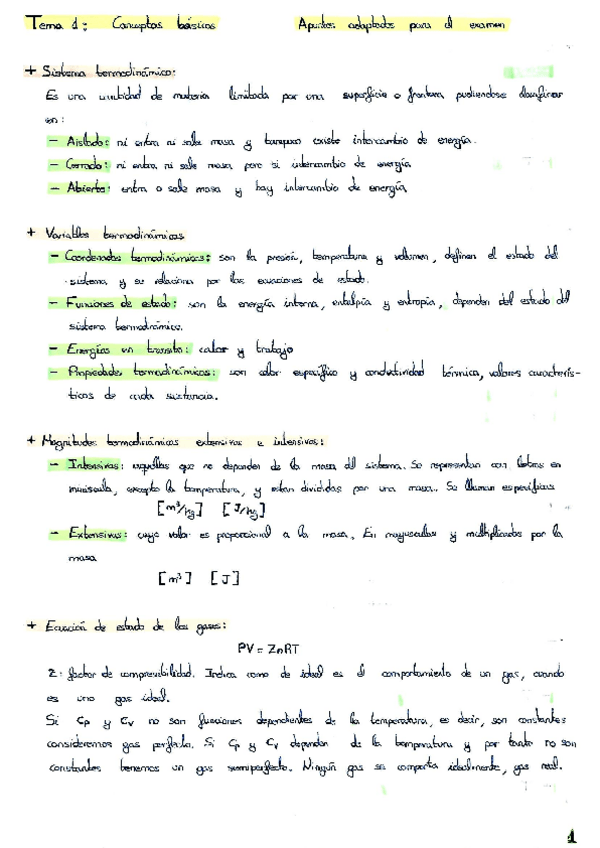 Tema 1: Conceptos básicos Apuntes adaptados para el examen
+ Sistema termodinámico:
Es una cantidad de materia limitada por una superficie o frontera, pudiendose clasificar
en:
- Aislado: ni entra ni sale masa y tampoco existe intercambio de energía.
- Cerrado: ni entra ni sale masa pero si intercambio de energía
- Abierto: entra o sale masa y hay intercambio de energía
+ Variables termodinámicas
- Coordenadas termodinámicas: son la presión, temperatura y volumen, definen el estado del
sistema y se relacionan por las ecuaciones de estado.
- Funciones de estado: son la energía interna, entalpía y entropía, dependen del estado del
sistema termodinámico.
- Energías en transito: calor y trabajo
- Propiedades termodinámicas: son calor específico y conductividad térmica, valores caracterís-
ticos de cada sustancia.
+ Magnitudes termodinámicas extensivas e intensivas:
- Intensivas: aquellas que no dependen de la masa del sistema. Se representan con letras en
minúscula, excepto la temperatura, y están divididas por una masa. Se llaman específicas
[m³/kg] [J/kg]
- Extensivas: cuyo valor es proporcional a la masa, En mayusculas y multiplicados por la
masa
[m³] [J]
+ Ecuación de estado de los gases:
PV = ZnRT
Z: factor de compresibilidad. Indica como de ideal es el comportamiento de un gas, cuando
es uno gas ideal.
Si Cp y Cv no son funciones dependientes de la temperatura, es decir, son constantes
consideremos gas perfecto. Si Cp y Cv dependen de la temperatura y por tanto no son
constantes tenemos un gas semiperfecto. Ningún gas se comporta idealmente, gas real.
1